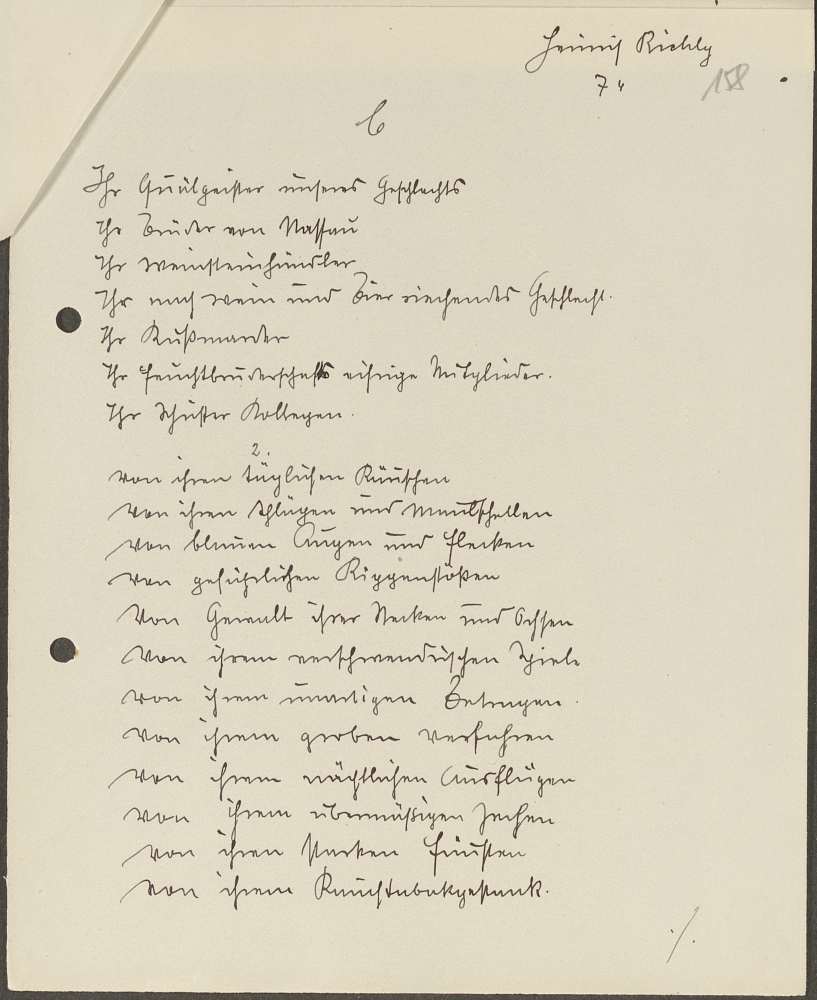 Heinrich Richly
7"
158
6
Ihr Quälgeister unseres Geschlechts
Ihr Brüder von Nassau
Ihr Weinsteinhändler
Ihr nach Wein und Bier riechendes Geschlecht.
Ihr Kußmarder
Ihr Feuchtbruderschafts eifrige Mitglieder.
Ihr Schuster Kollegen.
2.
von ihren täglichen Räuschen
von ihren Schlägen und Maulschellen
von blauen Augen und Flecken
von gefährlichen Rippenstößen
Von Gewalt ihrer Stecken und Ochsen
Von ihrem verschwendrischen Spiele
von ihrem unartigen Betragen.
von ihrem groben Verfahren
von ihrem nächtlichen Ausflügen
von ihrem übermäßigen Zechen
von ihren starken Fäusten
von ihrem Rauchtabakgestank.
./.